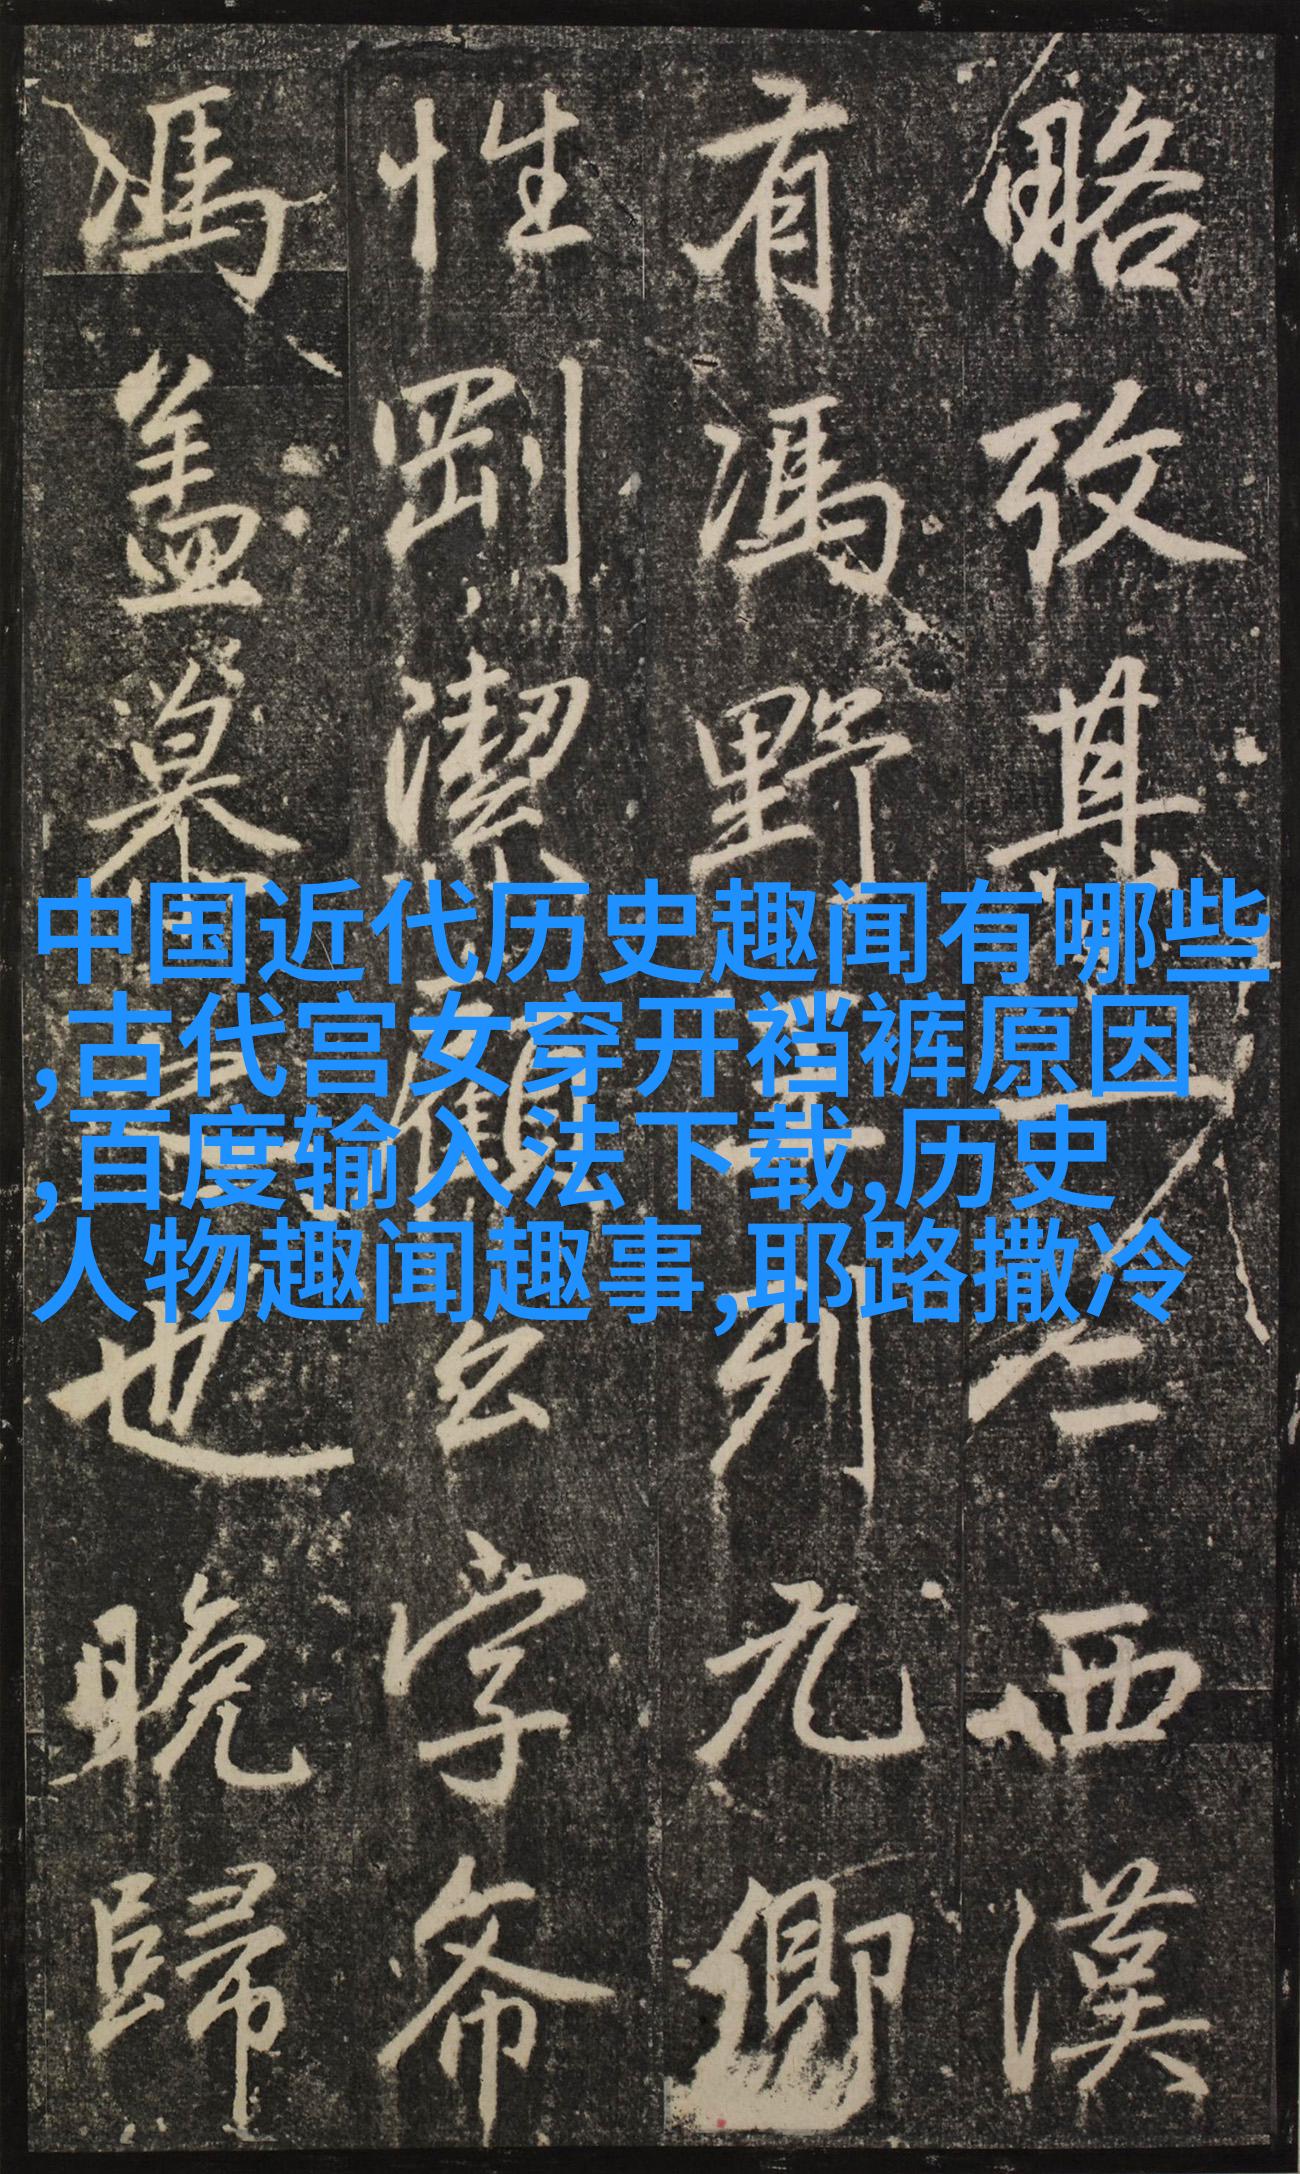 略攷其西漢
有馮野王列九卿
性剛潔顧公字希
馮盖慕也晚歸
中国近代历史趣闻有哪些
,古代宫女穿开裆裤原因
,百度输入法下载,历史
人物趣闻趣事,耶路撒冷